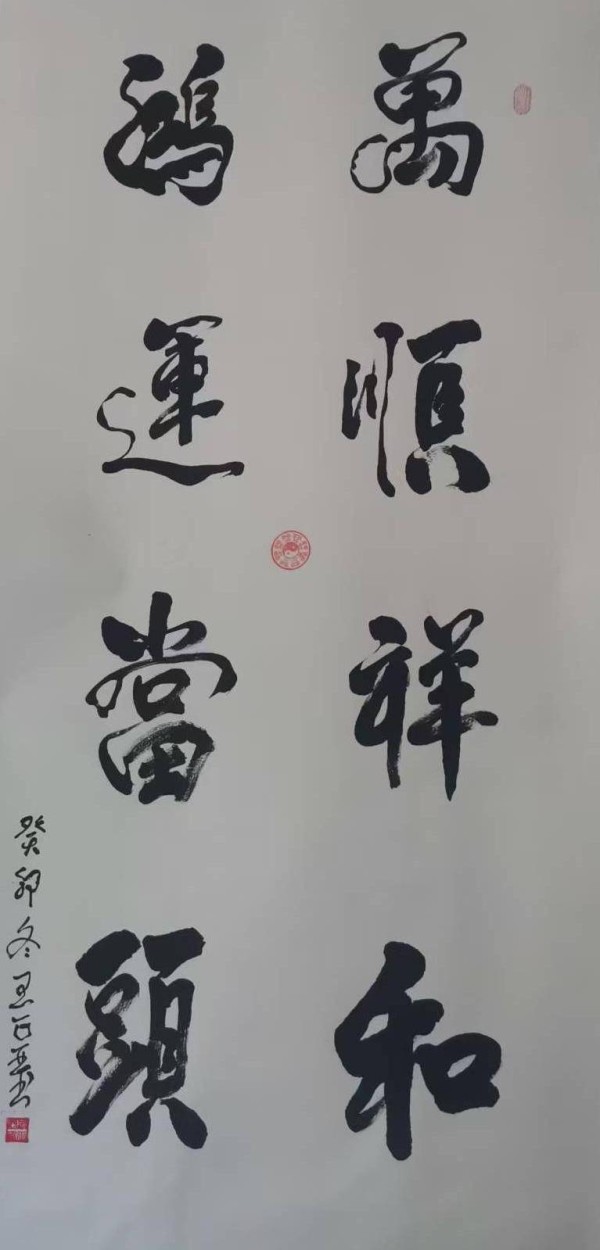 萬順祥和
鴻運當頭
癸卯冬